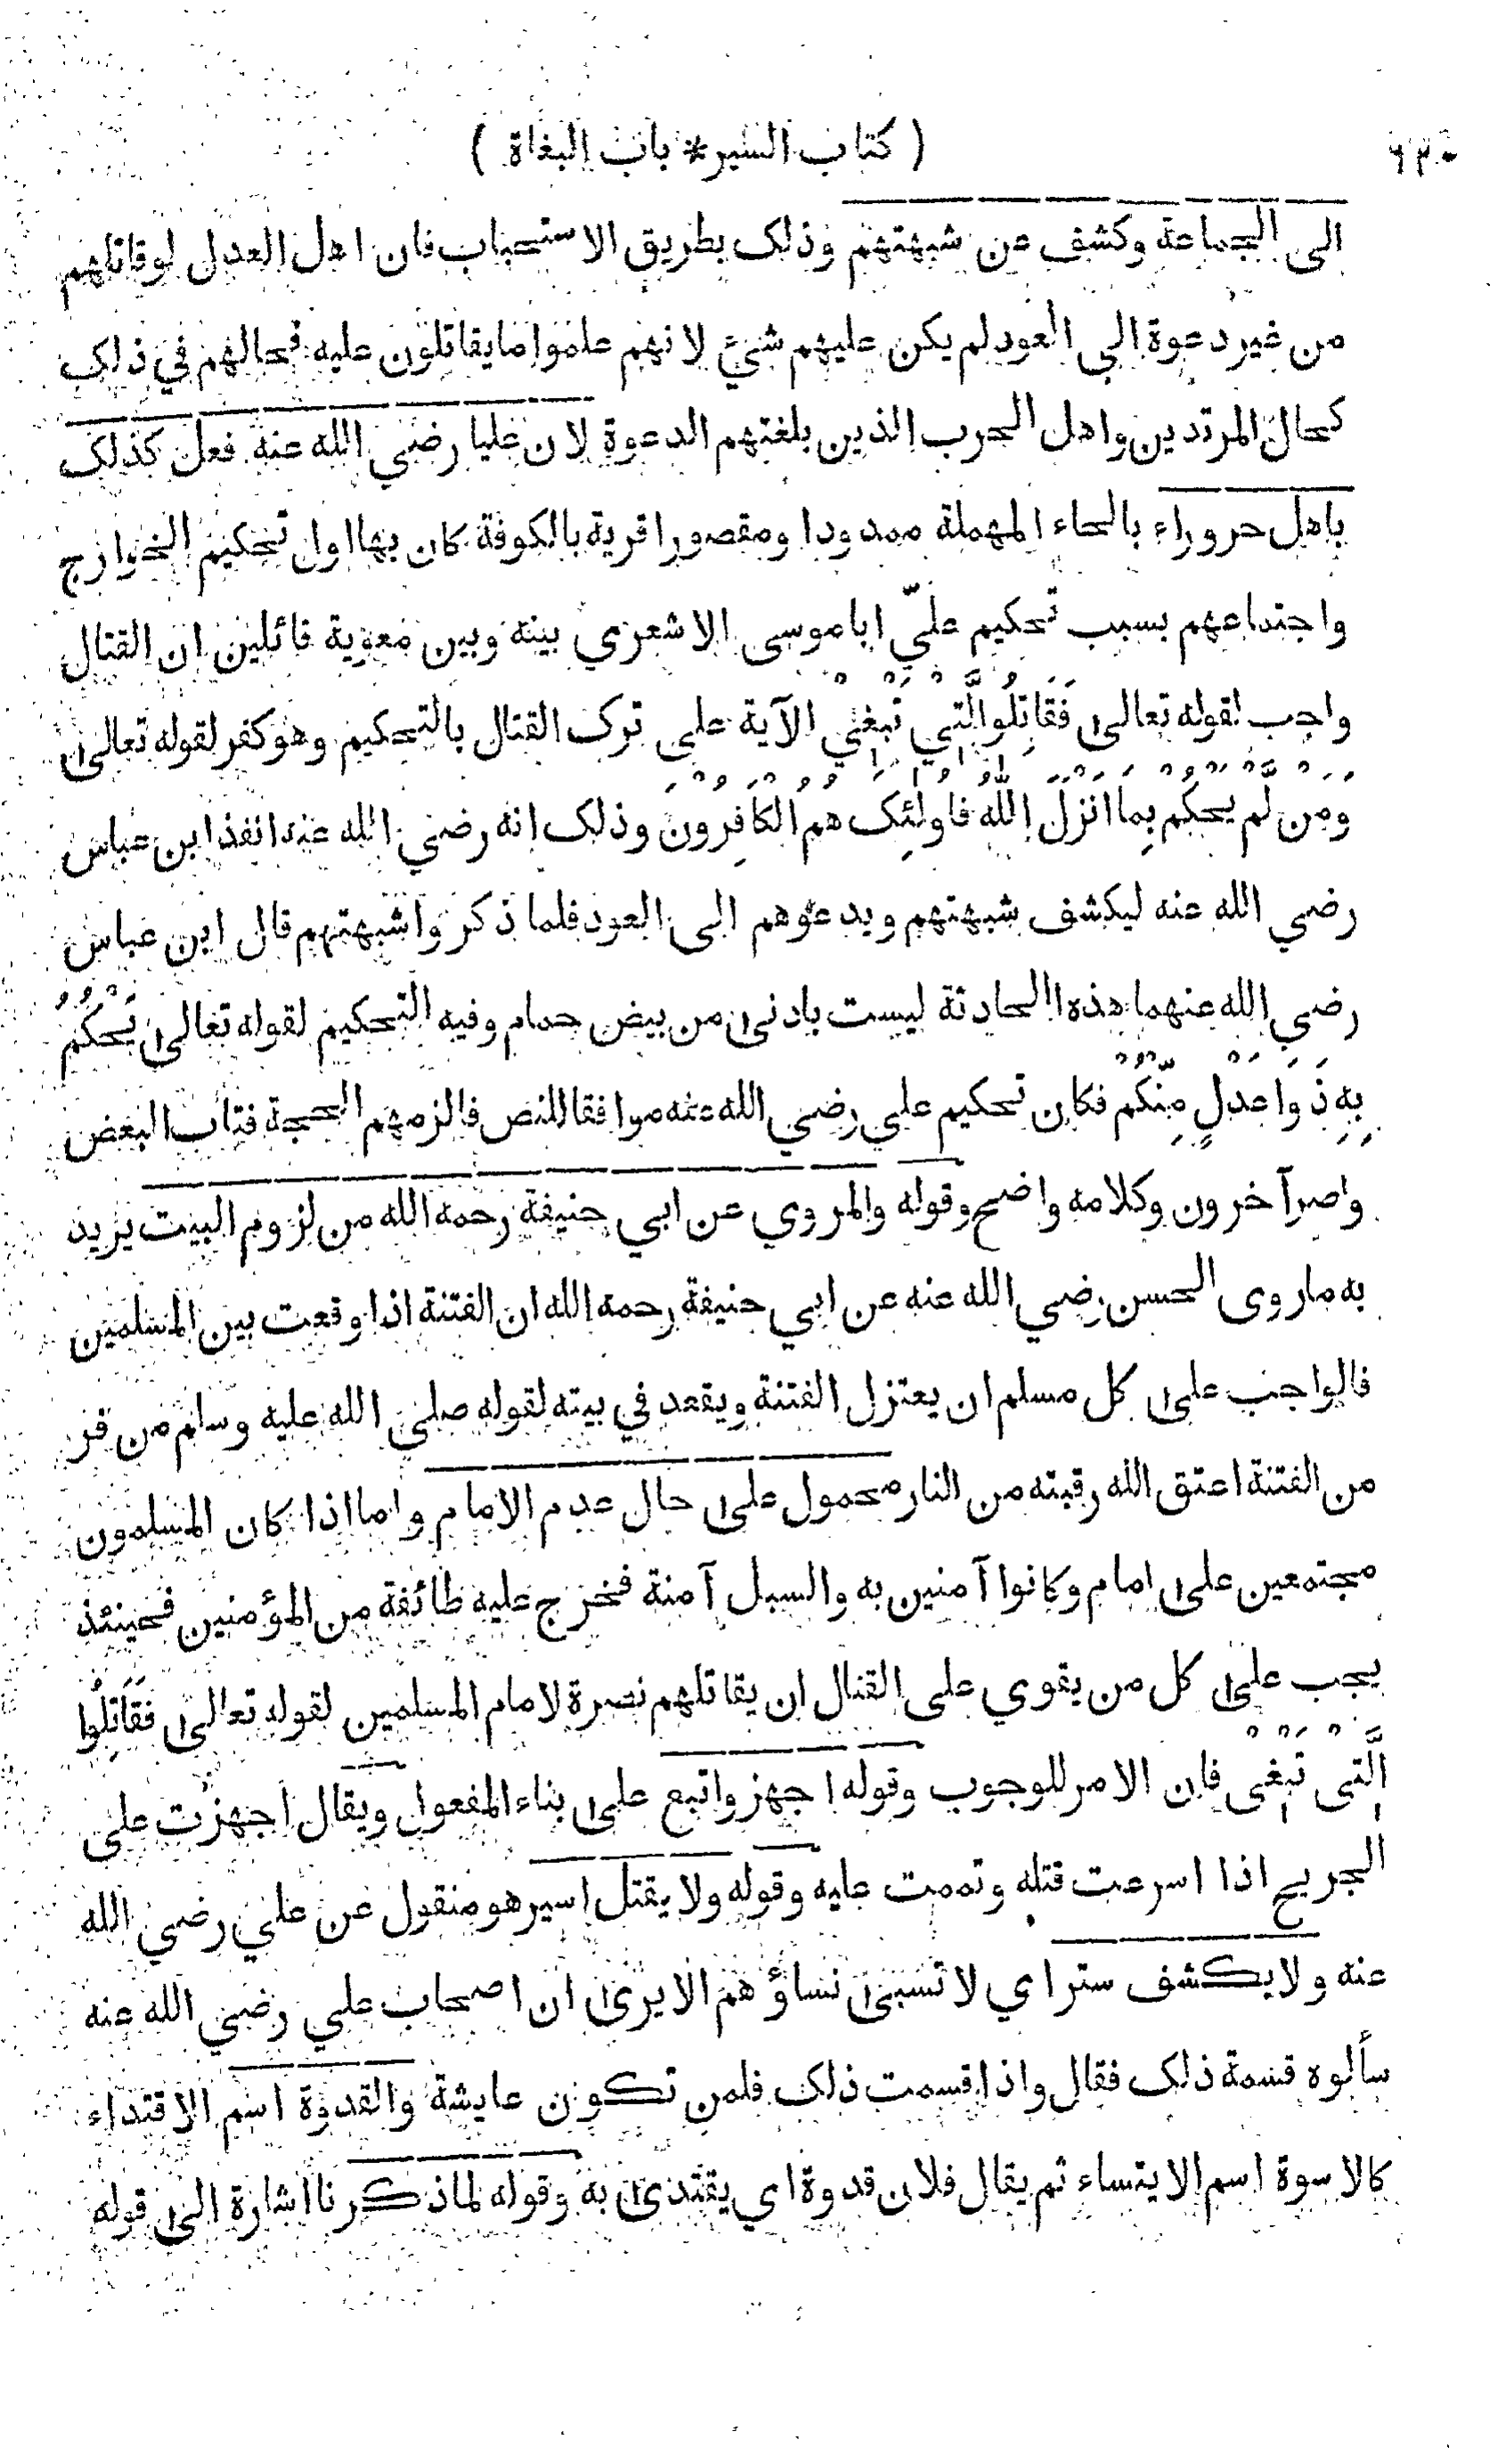 ( كتاب السير * باب البغاة )
الى الجماعة وكشف عن شبهتهم وذلك بطريق الاستحباب فان اهل العدل لوقاتلهم
من غير دعوة الى العود لم يكن عليهم شئ لانهم علموا ما يقاتلون عليه فحالهم في ذلك
كحال المرتدين واهل الحرب الذين بلغتهم الدعوة لان عليا رضي الله عنه فعل كذلك
باهل حروراء بالحاء المهملة ممدودا ومقصورا قرية بالكوفة كان بها اول تحكيم الخوارج
واجتماعهم بسبب تحكيم عليّ ابا موسى الاشعري بينه وبين معوية قائلين ان القتال
واجب لقوله تعالى فَقَاتِلُوا الَّتِي تَبْغِيْ الآية على ترك القتال بالتحكيم وهو كفر لقوله تعالى
وَمَنْ لَّمْ يَحْكُمْ بِمَا اَنْزَلَ اللهُ فَاُولٰئِكَ هُمُ الْكَافِرُوْنَ وذلك انه رضي الله عنه انفذ ابن عباس
رضي الله عنه ليكشف شبهتهم ويدعوهم الى العود فلما ذكروا شبهتهم قال ابن عباس
رضي الله عنهما هذه الحادثة ليست بادنى من بيض حمام وفيه التحكيم لقوله تعالى يَحْكُمُ
بِهِ ذَوَا عَدْلٍ مِنْكُمْ فكان تحكيم علي رضي الله عنه موافقا للنص فالزمهم الحجة فتاب البعض
واصر آخرون وكلامه واضح وقوله والمروي عن ابي حنيفة رحمه الله من لزوم البيت يريد
به ما روى الحسن رضي الله عنه عن ابي حنيفة رحمه الله ان الفتنة اذا وقعت بين المسلمين
فالواجب على كل مسلم ان يعتزل الفتنة ويقعد في بيته لقوله صلى الله عليه وسلم من فر
من الفتنة اعتق الله رقبته من النار محمول على حال عدم الامام واما اذا كان المسلمون
مجتمعين على امام وكانوا آمنين به والسبل آمنة فخرج عليه طائفة من المؤمنين فحينئذ
يجب على كل من يقوي على القتال ان يقاتلهم نصرة لامام المسلمين لقوله تعالى فَقَاتِلُوا
الَّتِيْ تَبْغِيْ فان الامر للوجوب وقوله اجهز واتبع على بناء المفعول ويقال اجهزت على
الجريح اذا اسرعت قتله وتممت عليه وقوله ولا يقتل اسير هو منقول عن علي رضي الله
عنه ولا يكشف ستر اي لا تسبى نساؤهم الا يرى ان اصحاب علي رضي الله عنه
سألوه قسمة ذلك فقال واذا قسمت ذلك فلمن تكون عايشة والقدوة اسم الاقتداء
كالاسوة اسم الايتساء ثم يقال فلان قدوة اي يقتدى به وقوله لما ذكرنا اشارة الى قوله